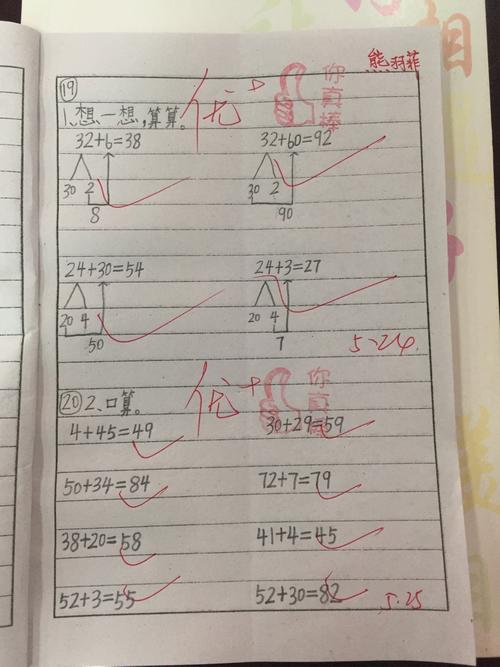 熊羽菲
⑲ 优+ 你真棒
1、想一想,算算。
32+6=38 32+60=92
30 2 30 2
8 90
24+30=54 24+3=27
20 4 20 4
50 7
5.24.
⑳ 2、口算。 优+ 你真棒
4+45=49 30+29=59
50+34=84 72+7=79
38+20=58 41+4=45
52+3=55 52+30=82
5.25